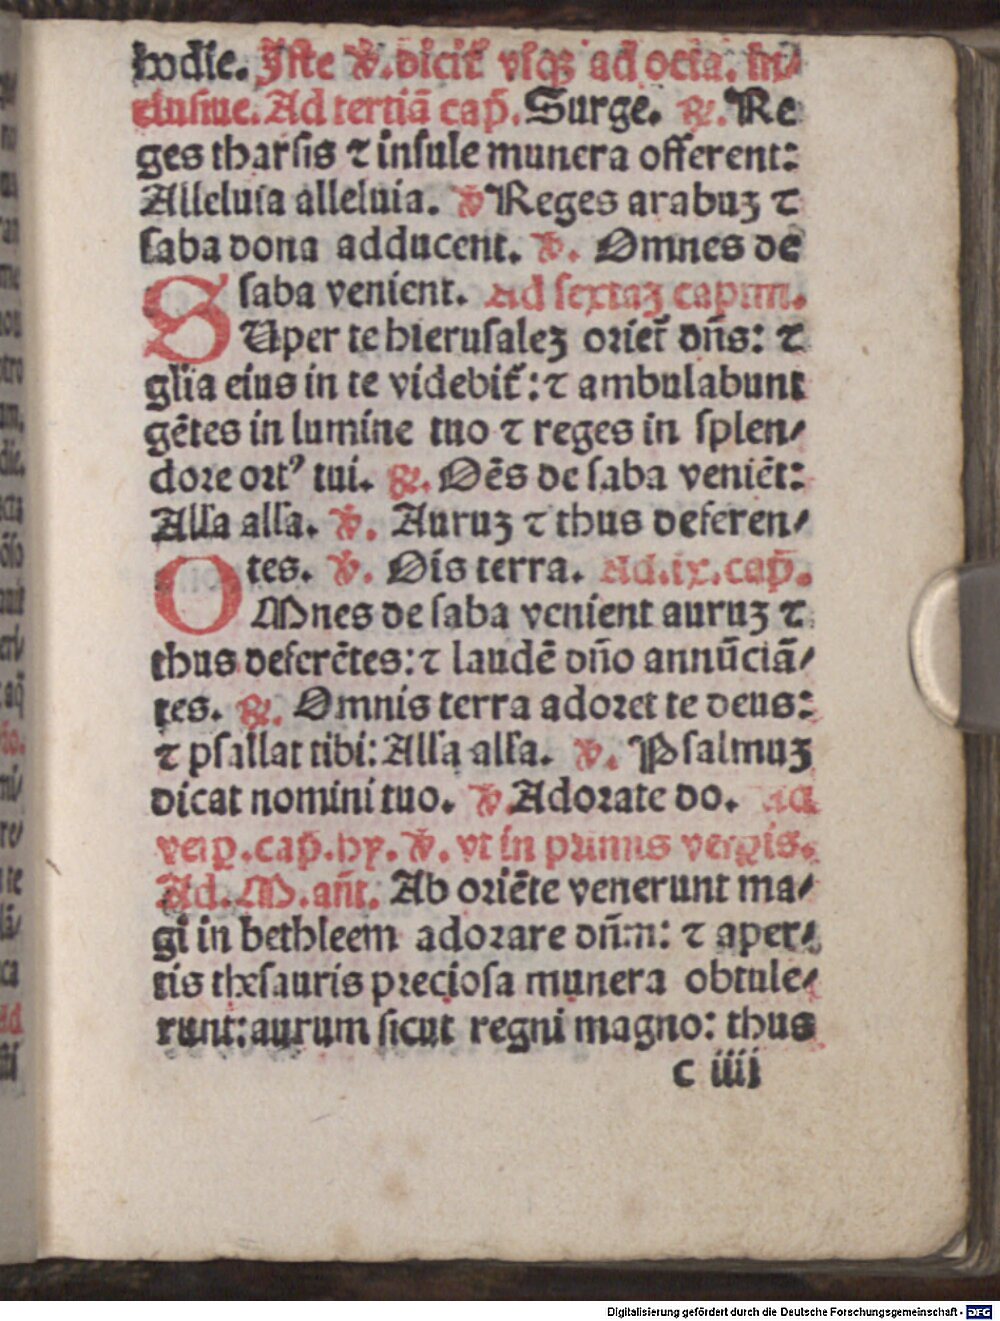 hodie. Iste ℣. dicit᷑ vsqꝫ ad octa. in⸗
clusiue. Ad tertiā cap̄. Surge. ℟. Re
ges tharsis ⁊ insule munera offerent:
Alleluia alleluia. ℣ Reges arabuꝫ ⁊
saba dona adducent. ℣. Omnes de
saba venient. Ad sextaꝫ capitm.
SUper te hierusaleꝫ oriet᷑ dn̄s: ⁊
gl̄ia eius in te videbit᷑: ⁊ ambulabunt
gētes in lumine tuo ⁊ reges in splen⸗
dore ortꝰ tui. ℟. Oēs de saba veniēt:
Alla alla. ℣. Auruꝫ ⁊ thus deferen⸗
tes. ℣. Ois terra. Ad. ix. cap̄.
OMnes de saba venient auruꝫ ⁊
thus deferētes: ⁊ laudē dn̄o annūciā⸗
tes. ℟. Omnis terra adoret te deus:
⁊ psallat tibi: Alla alla. ℣. Psalmuꝫ
dicat nomini tuo. ℣. Adorate do. Ad
vesp̄. cap̄. hꝫ. ℣. vt in primis vesp̄is.
Ad. M. an̄t. Ab oriēte venerunt ma⸗
gi in bethleem adorare dn̄m: ⁊ aper⸗
tis thesauris preciosa munera obtule⸗
runt: aurum sicut regni magno: thus
c iiij
Digitalisierung gefördert durch die Deutsche Forschungsgemeinschaft - DFG